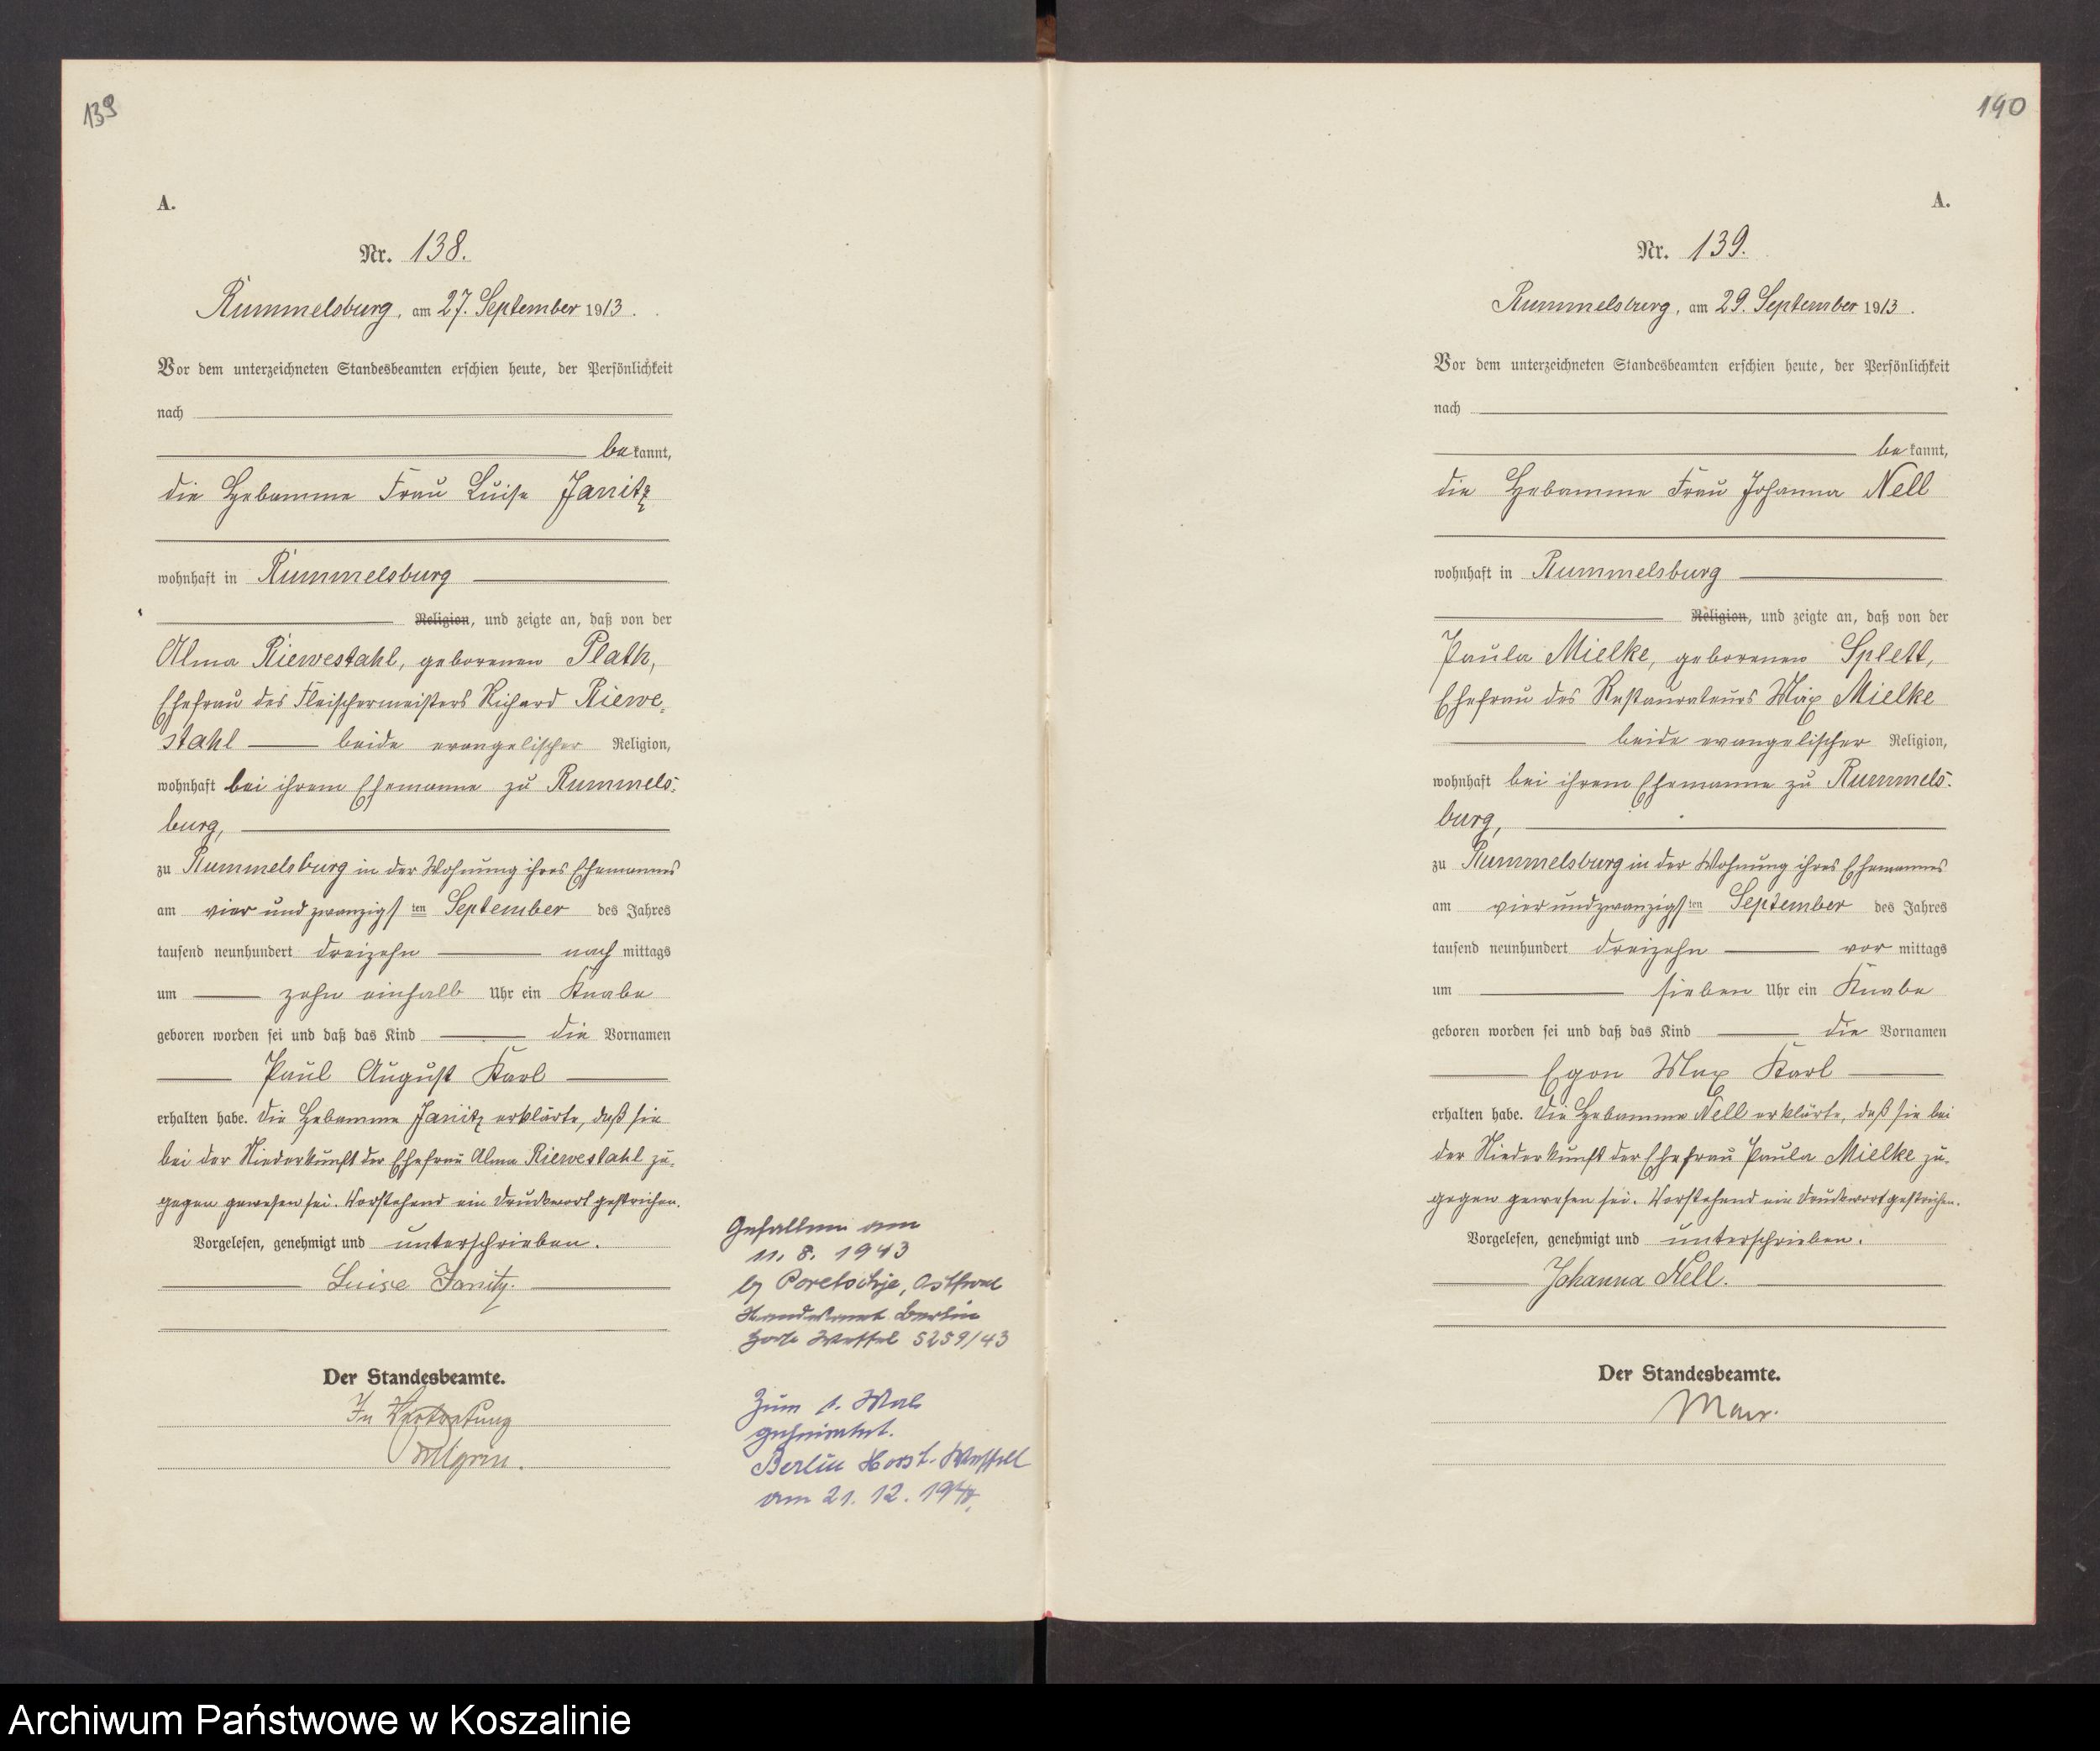 139
A.
Nr. 138.
Rummelsburg, am 27. September 1913.
Vor dem unterzeichneten Standesbeamten erschien heute, der Persönlichkeit
nach
bekannt,
die Hebamme Frau Luise Janitz
wohnhaft in Rummelsburg
Religion, und zeigte an, daß von der
Alma Riewestahl, geborenen Plath,
Ehefrau des Fleischermeisters Richard Riewe-
stahl beide evangelischer Religion,
wohnhaft bei ihrem Ehemanne zu Rummels-
burg,
zu Rummelsburg in der Wohnung ihres Ehemannes
am vier und zwanzigsten September des Jahres
tausend neunhundert dreizehn nach mittags
um zehn einhalb Uhr ein Knabe
geboren worden sei und daß das Kind die Vornamen
Paul August Karl
erhalten habe. Die Hebamme Janitz erklärte, daß sie
bei der Niederkunft der Ehefrau Alma Riewestahl zu-
gegen gewesen sei. Vorstehend ein Druckwort gestrichen.
Vorgelesen, genehmigt und unterschrieben.
Luise Janitz.
Der Standesbeamte.
In Vertretung
Gefallen am
11. 8. 1943
by Poretschje, Ostfront
Standesamt Berlin
Horst Wessel 5259/43
Zum 1. Mal
geheiratet.
Berlin Horst-Wessel
am 21. 12. 
190
A.
Nr. 139.
Rummelsburg, am 29. September 1913.
Vor dem unterzeichneten Standesbeamten erschien heute, der Persönlichkeit
nach
bekannt,
die Hebamme Frau Johanna Nell
wohnhaft in Rummelsburg
Religion, und zeigte an, daß von der
Paula Mielke, geborenen Splett,
Ehefrau des Restaurateurs Max Mielke
beide evangelischer Religion,
wohnhaft bei ihrem Ehemanne zu Rummels-
burg,
zu Rummelsburg in der Wohnung ihres Ehemannes
am vier und zwanzigsten September des Jahres
tausend neunhundert dreizehn vor mittags
um sieben Uhr ein Knabe
geboren worden sei und daß das Kind die Vornamen
Egon Max Karl
erhalten habe. Die Hebamme Nell erklärte, daß sie bei
der Niederkunft der Ehefrau Paula Mielke zu-
gegen gewesen sei. Vorstehend ein Druckwort gestrichen.
Vorgelesen, genehmigt und unterschrieben.
Johanna Nell.
Der Standesbeamte.
Archiwum Państwowe w Koszalinie